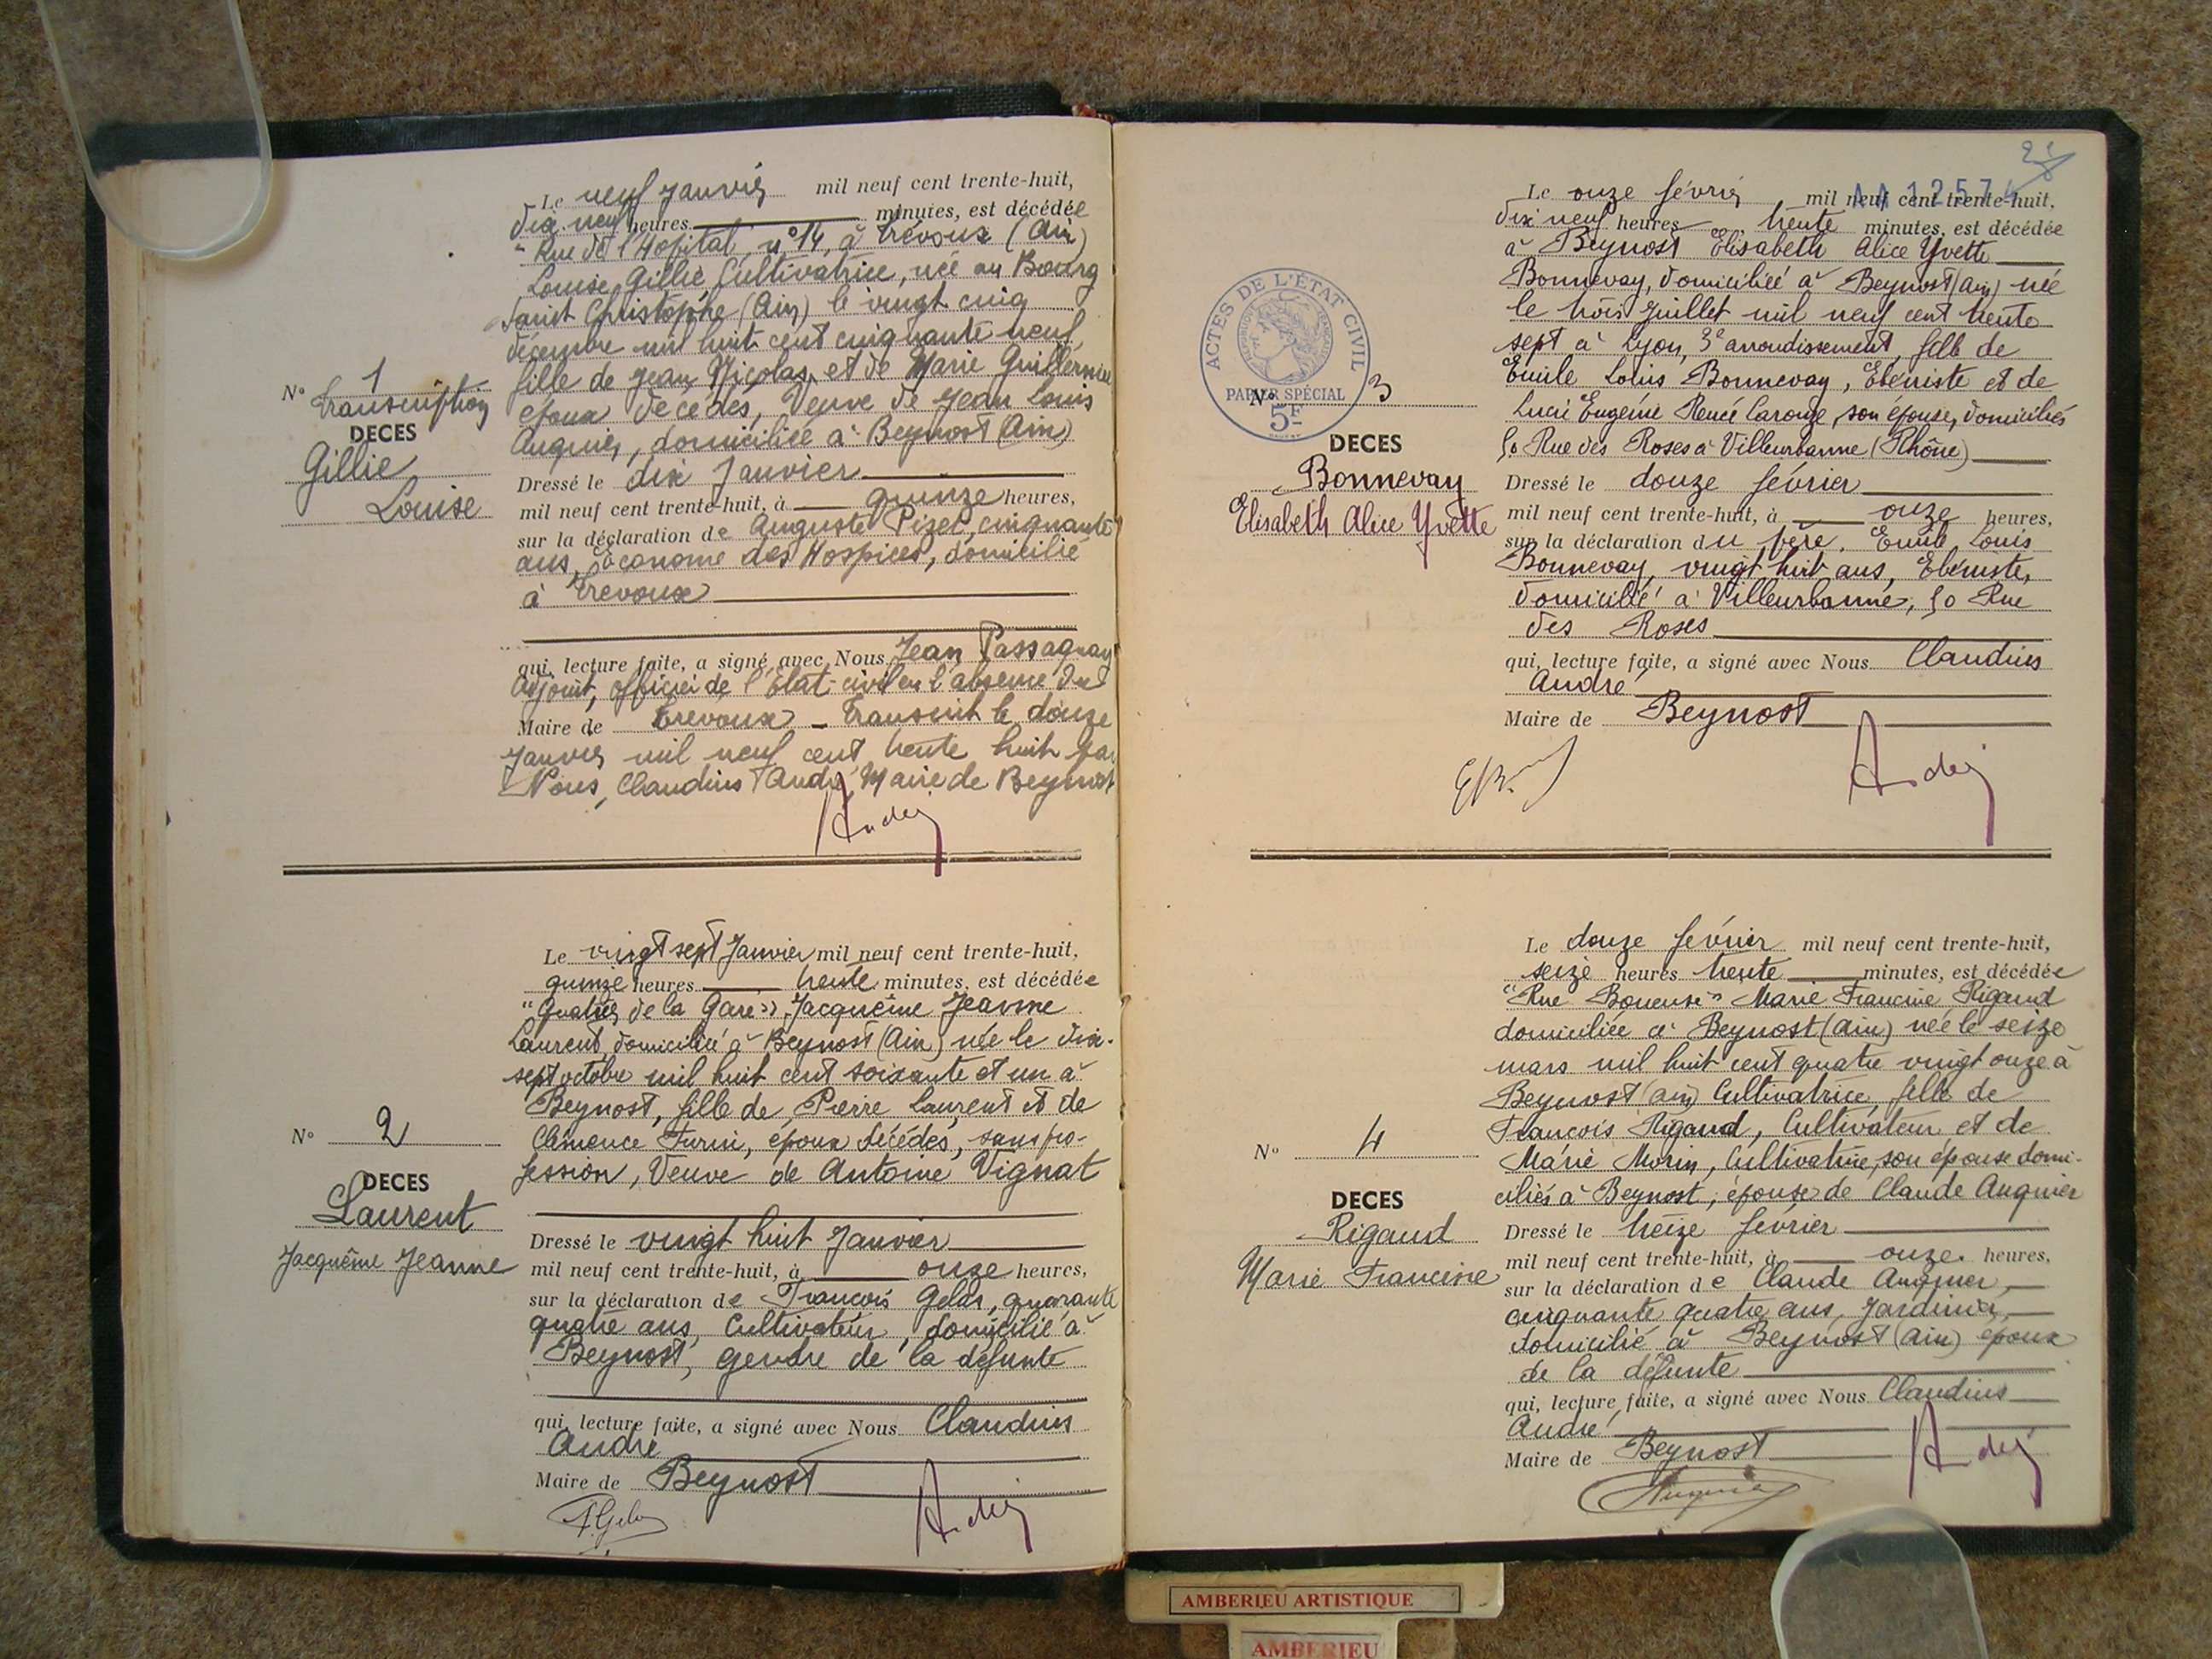 Le neuf janvier mil neuf cent trente-huit,
dix neuf heures minutes, est décédée
"Rue de l'Hopital" n°14, à Trévoux (Ain)
Louise Gillie, Cultivatrice, née au Bourg
Saint Christophe (Ain) le vingt cinq
décembre mil huit cent cinquante neuf
fille de Jean Nicolas et de Marie Guillermin
époux décédés, Veuve de Jean Louis
Auguier, domiciliée à Beynost (Ain)
N° 1
Transcription
DECES
Gillie
Louise
Dressé le dix Janvier
mil neuf cent trente-huit, à quinze heures,
sur la déclaration de Auguste Pizet, cinquante
ans, économe des Hospices, domicilié
à Trévoux
qui, lecture faite, a signé avec Nous Jean Passaquay
Adjoint, officier de l'Etat-civil en l'absence du
Maire de Trévoux - Transcrit le douze
Janvier mil neuf cent trente huit par
Nous, Claudius André, Maire de Beynost
André
Le vingt sept Janvier mil neuf cent trente-huit,
quinze heures trente minutes, est décédée
"Quartier de la Gare" Jacquême Jeanne
Laurent, domiciliée à Beynost (Ain) née le dix-
sept octobre mil huit cent soixante et un à
Beynost, fille de Pierre Laurent et de
Clémence Turin, époux décédés, sans pro-
fession, Veuve de Antoine Vignat
N° 2
DECES
Laurent
Jacquême Jeanne
Dressé le vingt huit Janvier
mil neuf cent trente-huit, à onze heures,
sur la déclaration de François Gelas, quarante
quatre ans, Cultivateur, domicilié à
Beynost, gendre de la défunte
qui, lecture faite, a signé avec Nous Claudius
André
Maire de Beynost
F. Gelas
André
11 1257
Le onze février mil neuf cent trente-huit,
dix neuf heures trente minutes, est décédée
à Beynost Elisabeth Alice Yvette
Bonnevay, domiciliée à Beynost (Ain) née
le trois juillet mil neuf cent trente
sept à Lyon, 3e arrondissement, fille de
Emile Louis Bonnevay, Ebéniste et de
Lucie Eugénie Renée Carouge, son épouse, domiciliés
50 Rue des Roses à Villeurbanne (Rhône)
ACTES DE L'ÉTAT CIVIL
RÉPUBLIQUE FRANÇAISE
PAPIER SPÉCIAL
5F
N° 3
DECES
Bonnevay
Elisabeth Alice Yvette
Dressé le douze février
mil neuf cent trente-huit, à onze heures,
sur la déclaration du père, Emile Louis
Bonnevay, vingt huit ans, Ebéniste,
domicilié à Villeurbanne, 50 Rue
des Roses
qui, lecture faite, a signé avec Nous Claudius
André
Maire de Beynost
André
Le douze février mil neuf cent trente-huit,
seize heures trente minutes, est décédée
"Rue Boueuse" Marie Francine Rigaud
domiciliée à Beynost (Ain) née le seize
mars mil huit cent quatre vingt onze à
Beynost (Ain) Cultivatrice, fille de
François Rigaud, Cultivateur et de
Marie Morin, Cultivatrice, son épouse domi-
ciliés à Beynost, épouse de Claude Auguier
N° 4
DECES
Rigaud
Marie Francine
Dressé le treize février
mil neuf cent trente-huit, à onze heures,
sur la déclaration de Claude Auguier,
cinquante quatre ans, Jardinier,
domicilié à Beynost (Ain) époux
de la défunte
qui, lecture faite, a signé avec Nous Claudius
André
Maire de Beynost
Auguier
André
AMBERIEU ARTISTIQUE
AMBERIEU